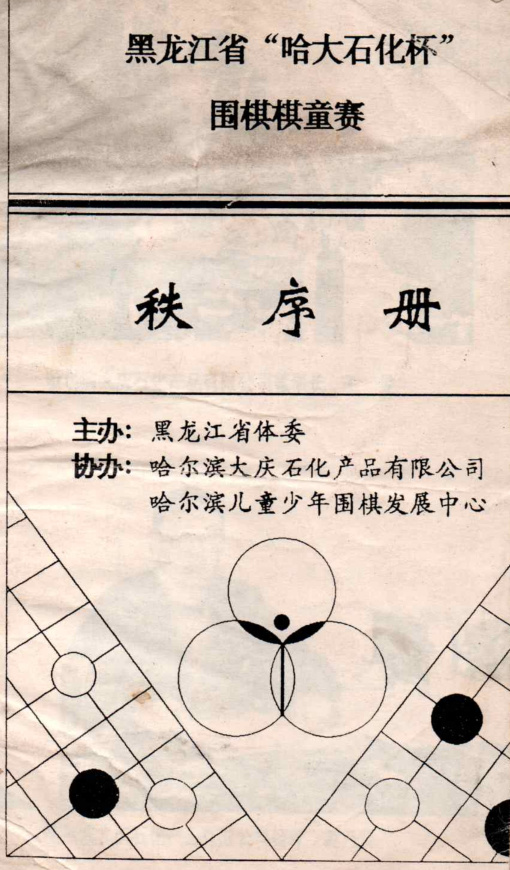 黑龙江省“哈大石化杯”
围棋棋童赛
秩序册
主办：黑龙江省体委
协办：哈尔滨大庆石化产品有限公司
哈尔滨儿童少年围棋发展中心